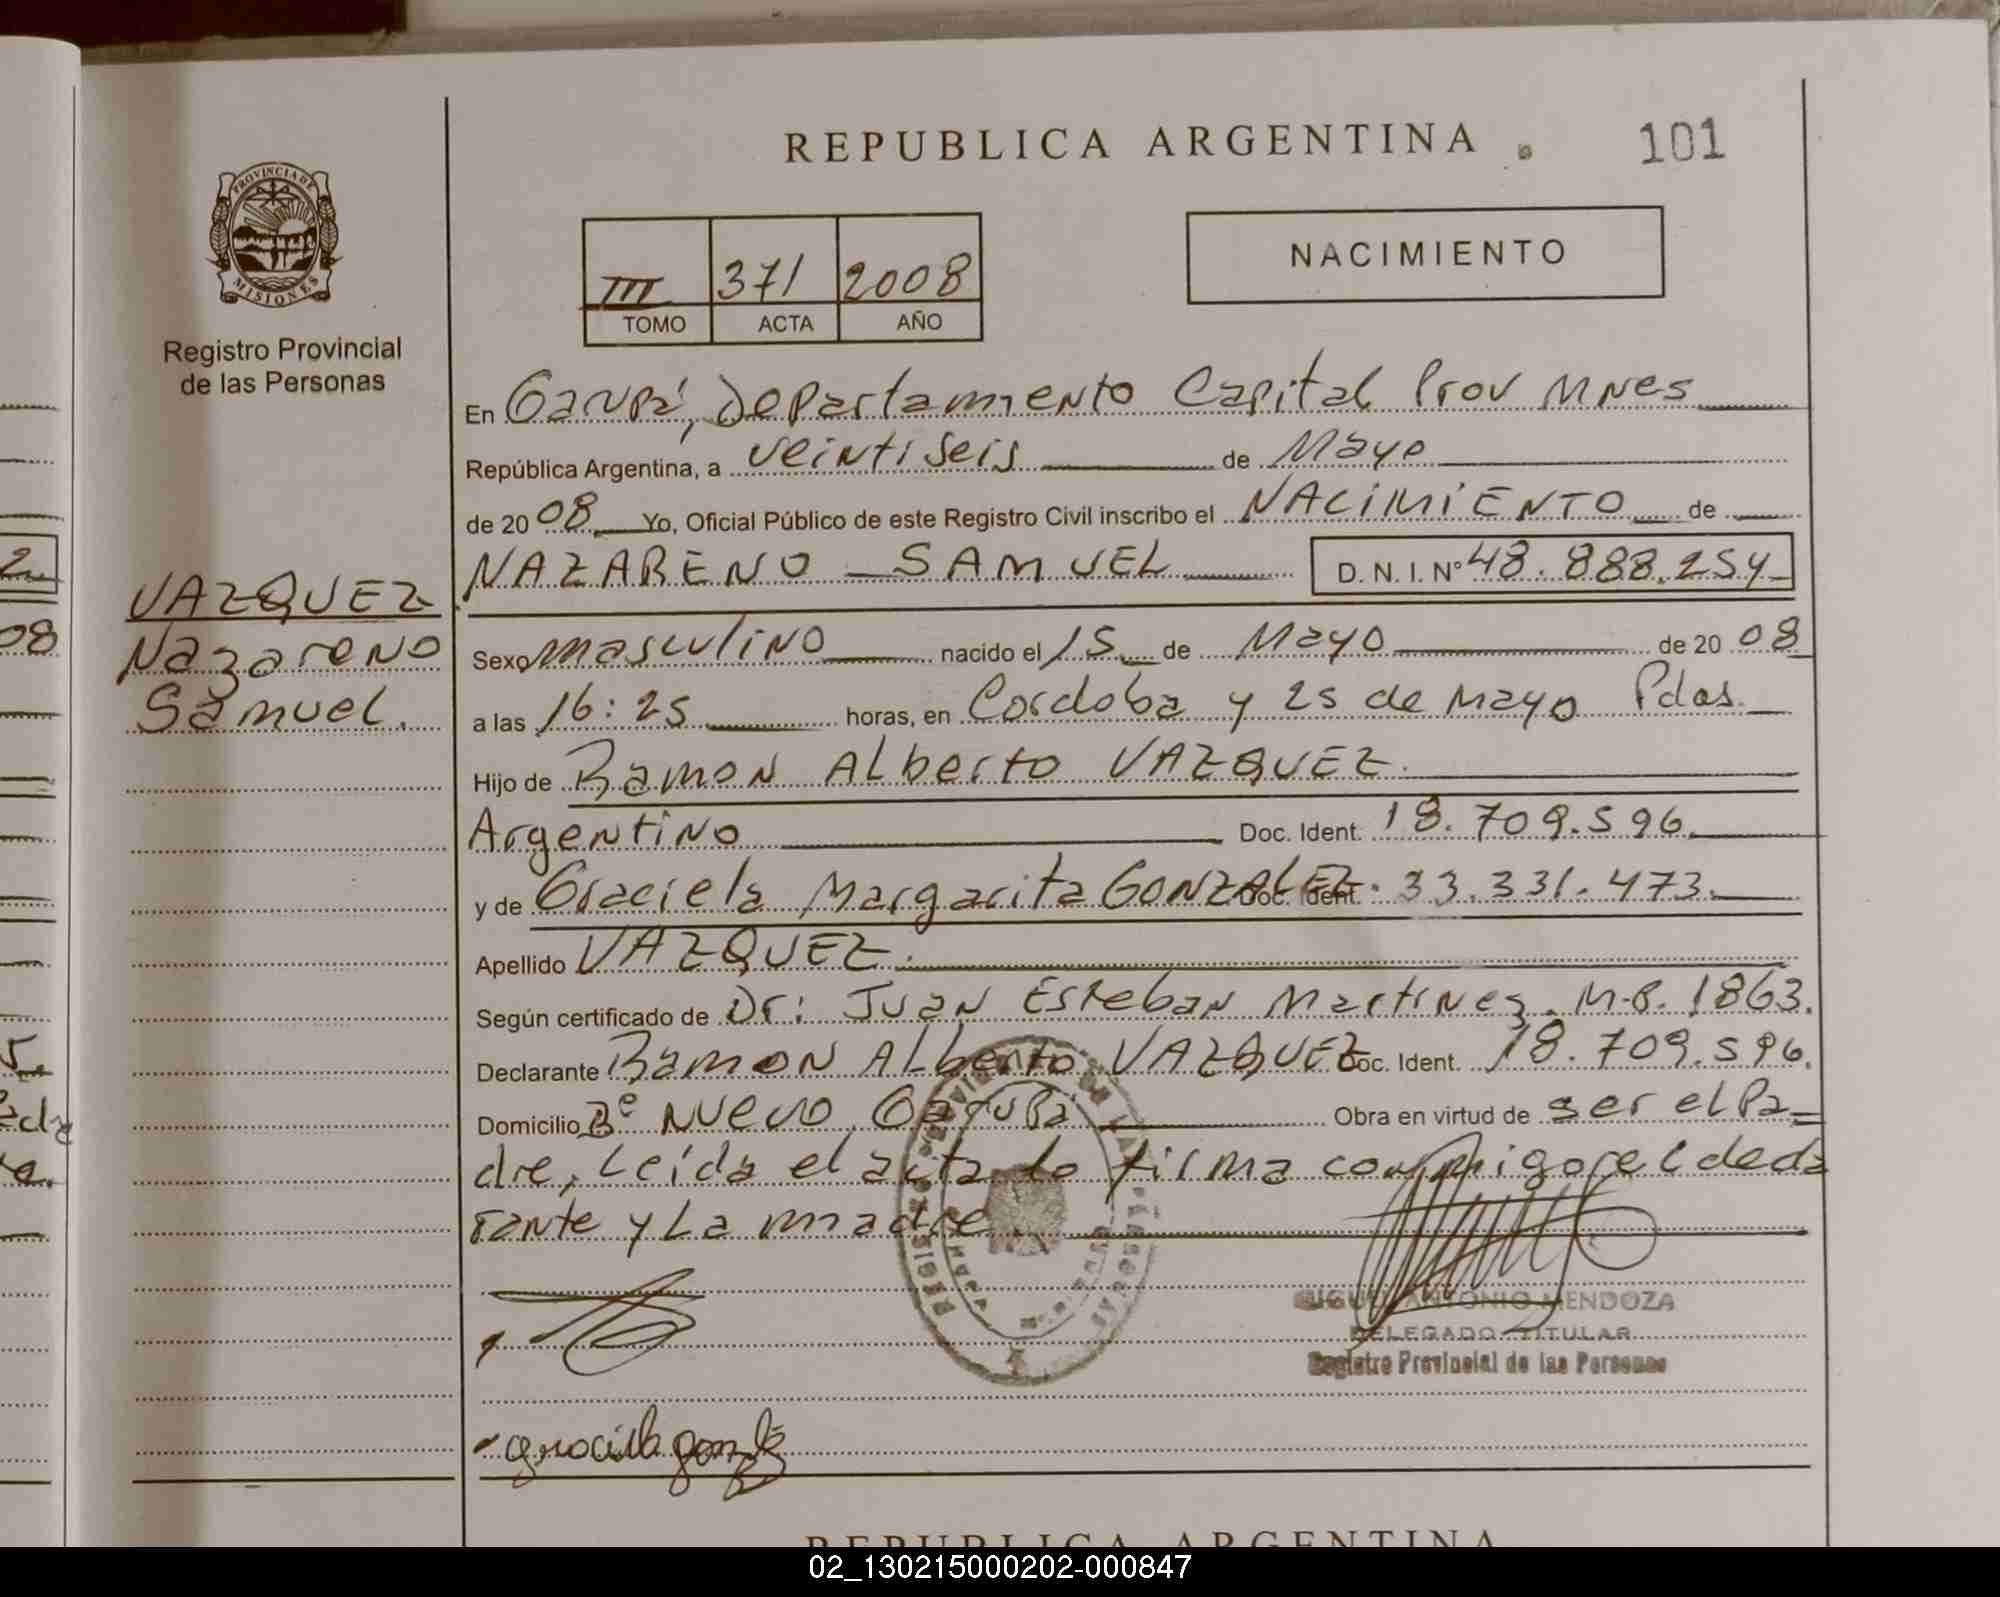 REPUBLICA ARGENTINA
101
PROVINCIA DE
MISIONES
Registro Provincial
de las Personas
III 371 2008
TOMO ACTA AÑO
NACIMIENTO
En Garupá, Departamento Capital Prov Mnes
República Argentina, a veintiseis de Mayo
de 2008 Yo, Oficial Público de este Registro Civil inscribo el NACIMIENTO de
NAZARENO SAMUEL D.N.I. N° 48.888.254
VAZQUEZ
Nazareno
Samuel.
Sexo masculino nacido el 15 de Mayo de 2008
a las 16:25 horas, en Cordoba y 25 de Mayo Pdas.
Hijo de Ramon Alberto VAZQUEZ.
Argentino Doc. Ident. 18.709.596
y de Graciela Margarita GONZALEZ. Doc. Ident. 33.331.473.
Apellido VAZQUEZ.
Según certificado de Dr: Juan Esteban Martinez. M-P. 1863.
Declarante Ramon Alberto VAZQUEZ Doc. Ident. 18.709.596.
Domicilio B° Nuevo Garupá Obra en virtud de ser el Pa=
dre, Leída el acta la firma conmigo el decla
rante y La madre
MIGUEL ANTONIO MENDOZA
DELEGADO TITULAR
Registro Provincial de las Personas
graciela gonzalez
REPUBLICA ARGENTINA
02_130215000202-000847